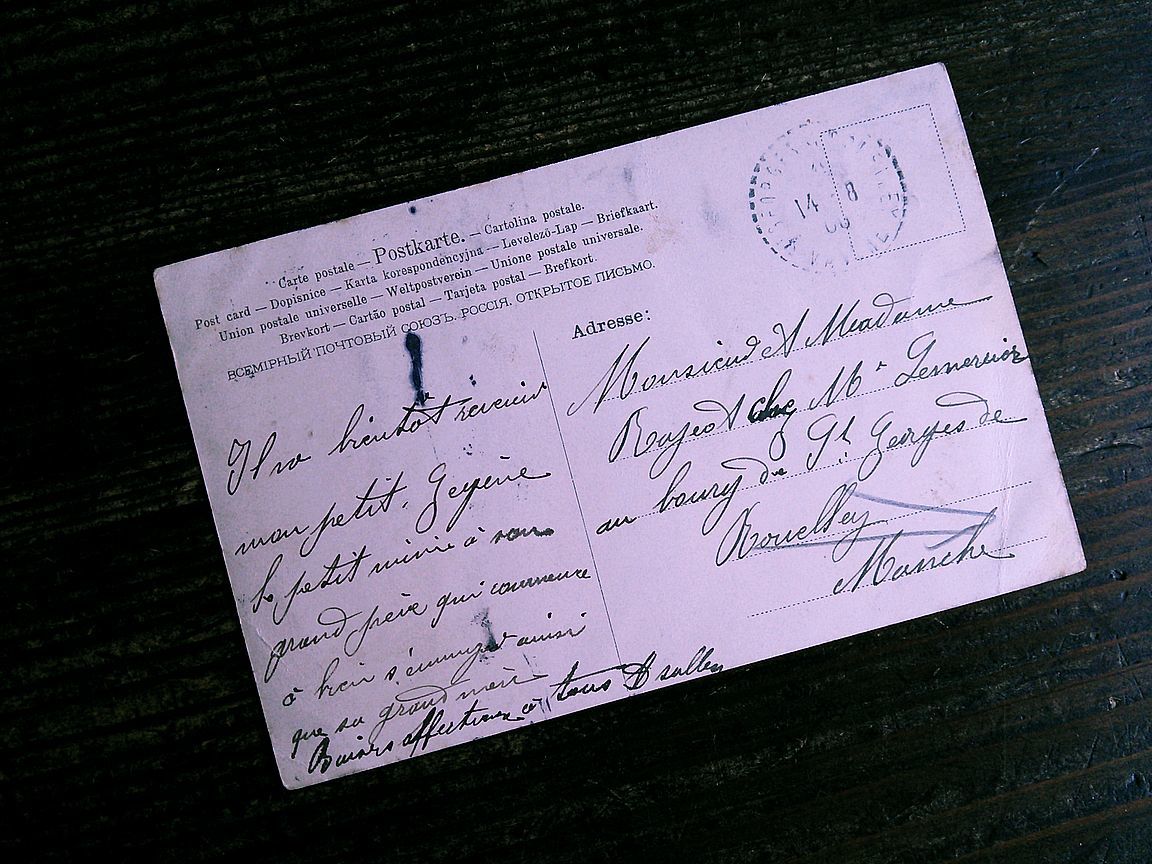 Carte postale — Postkarte. — Cartolina postale.
Post card — Dopisnice — Karta korespondencyjna — Levelező-Lap — Briefkaart.
Union postale universelle — Weltpostverein — Unione postale universale.
Brevkort — Cartão postal — Tarjeta postal — Brefkort.
ВСЕМІРНЫЙ ПОЧТОВЫЙ СОЮЗЪ. РОССІЯ. ОТКРЫТОЕ ПИСЬМО.
14 8
Adresse:
Monsieur et Madame
chez Mr Lemercier
au bourg de St Georges de
Rouelley
Manche
Il va bientôt revenir
mon petit,
le petit mimi à son
grand père qui commence
à bien s'ennuyer ainsi
que sa grand mère
Baisers affectueux à tous